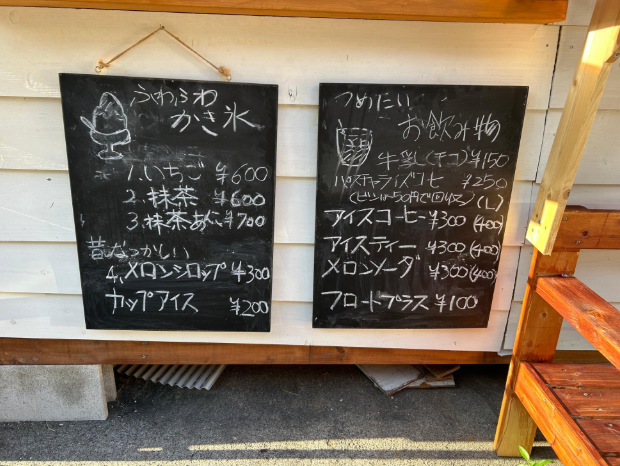 ふわふわ
かき氷
1.いちご ¥600
2.抹茶 ¥600
3.抹茶あずき ¥700
昔なつかしい
4.メロンシロップ ¥300
カップアイス ¥200
つめたい
お飲み物
牛乳(チョコ) ¥150
パスチャライズコーヒ ¥250
(ビンは50円で回収) (L)
アイスコーヒー ¥300 (400)
アイスティー ¥300 (400)
メロンソーダ ¥300 (400)
フロートプラス ¥100